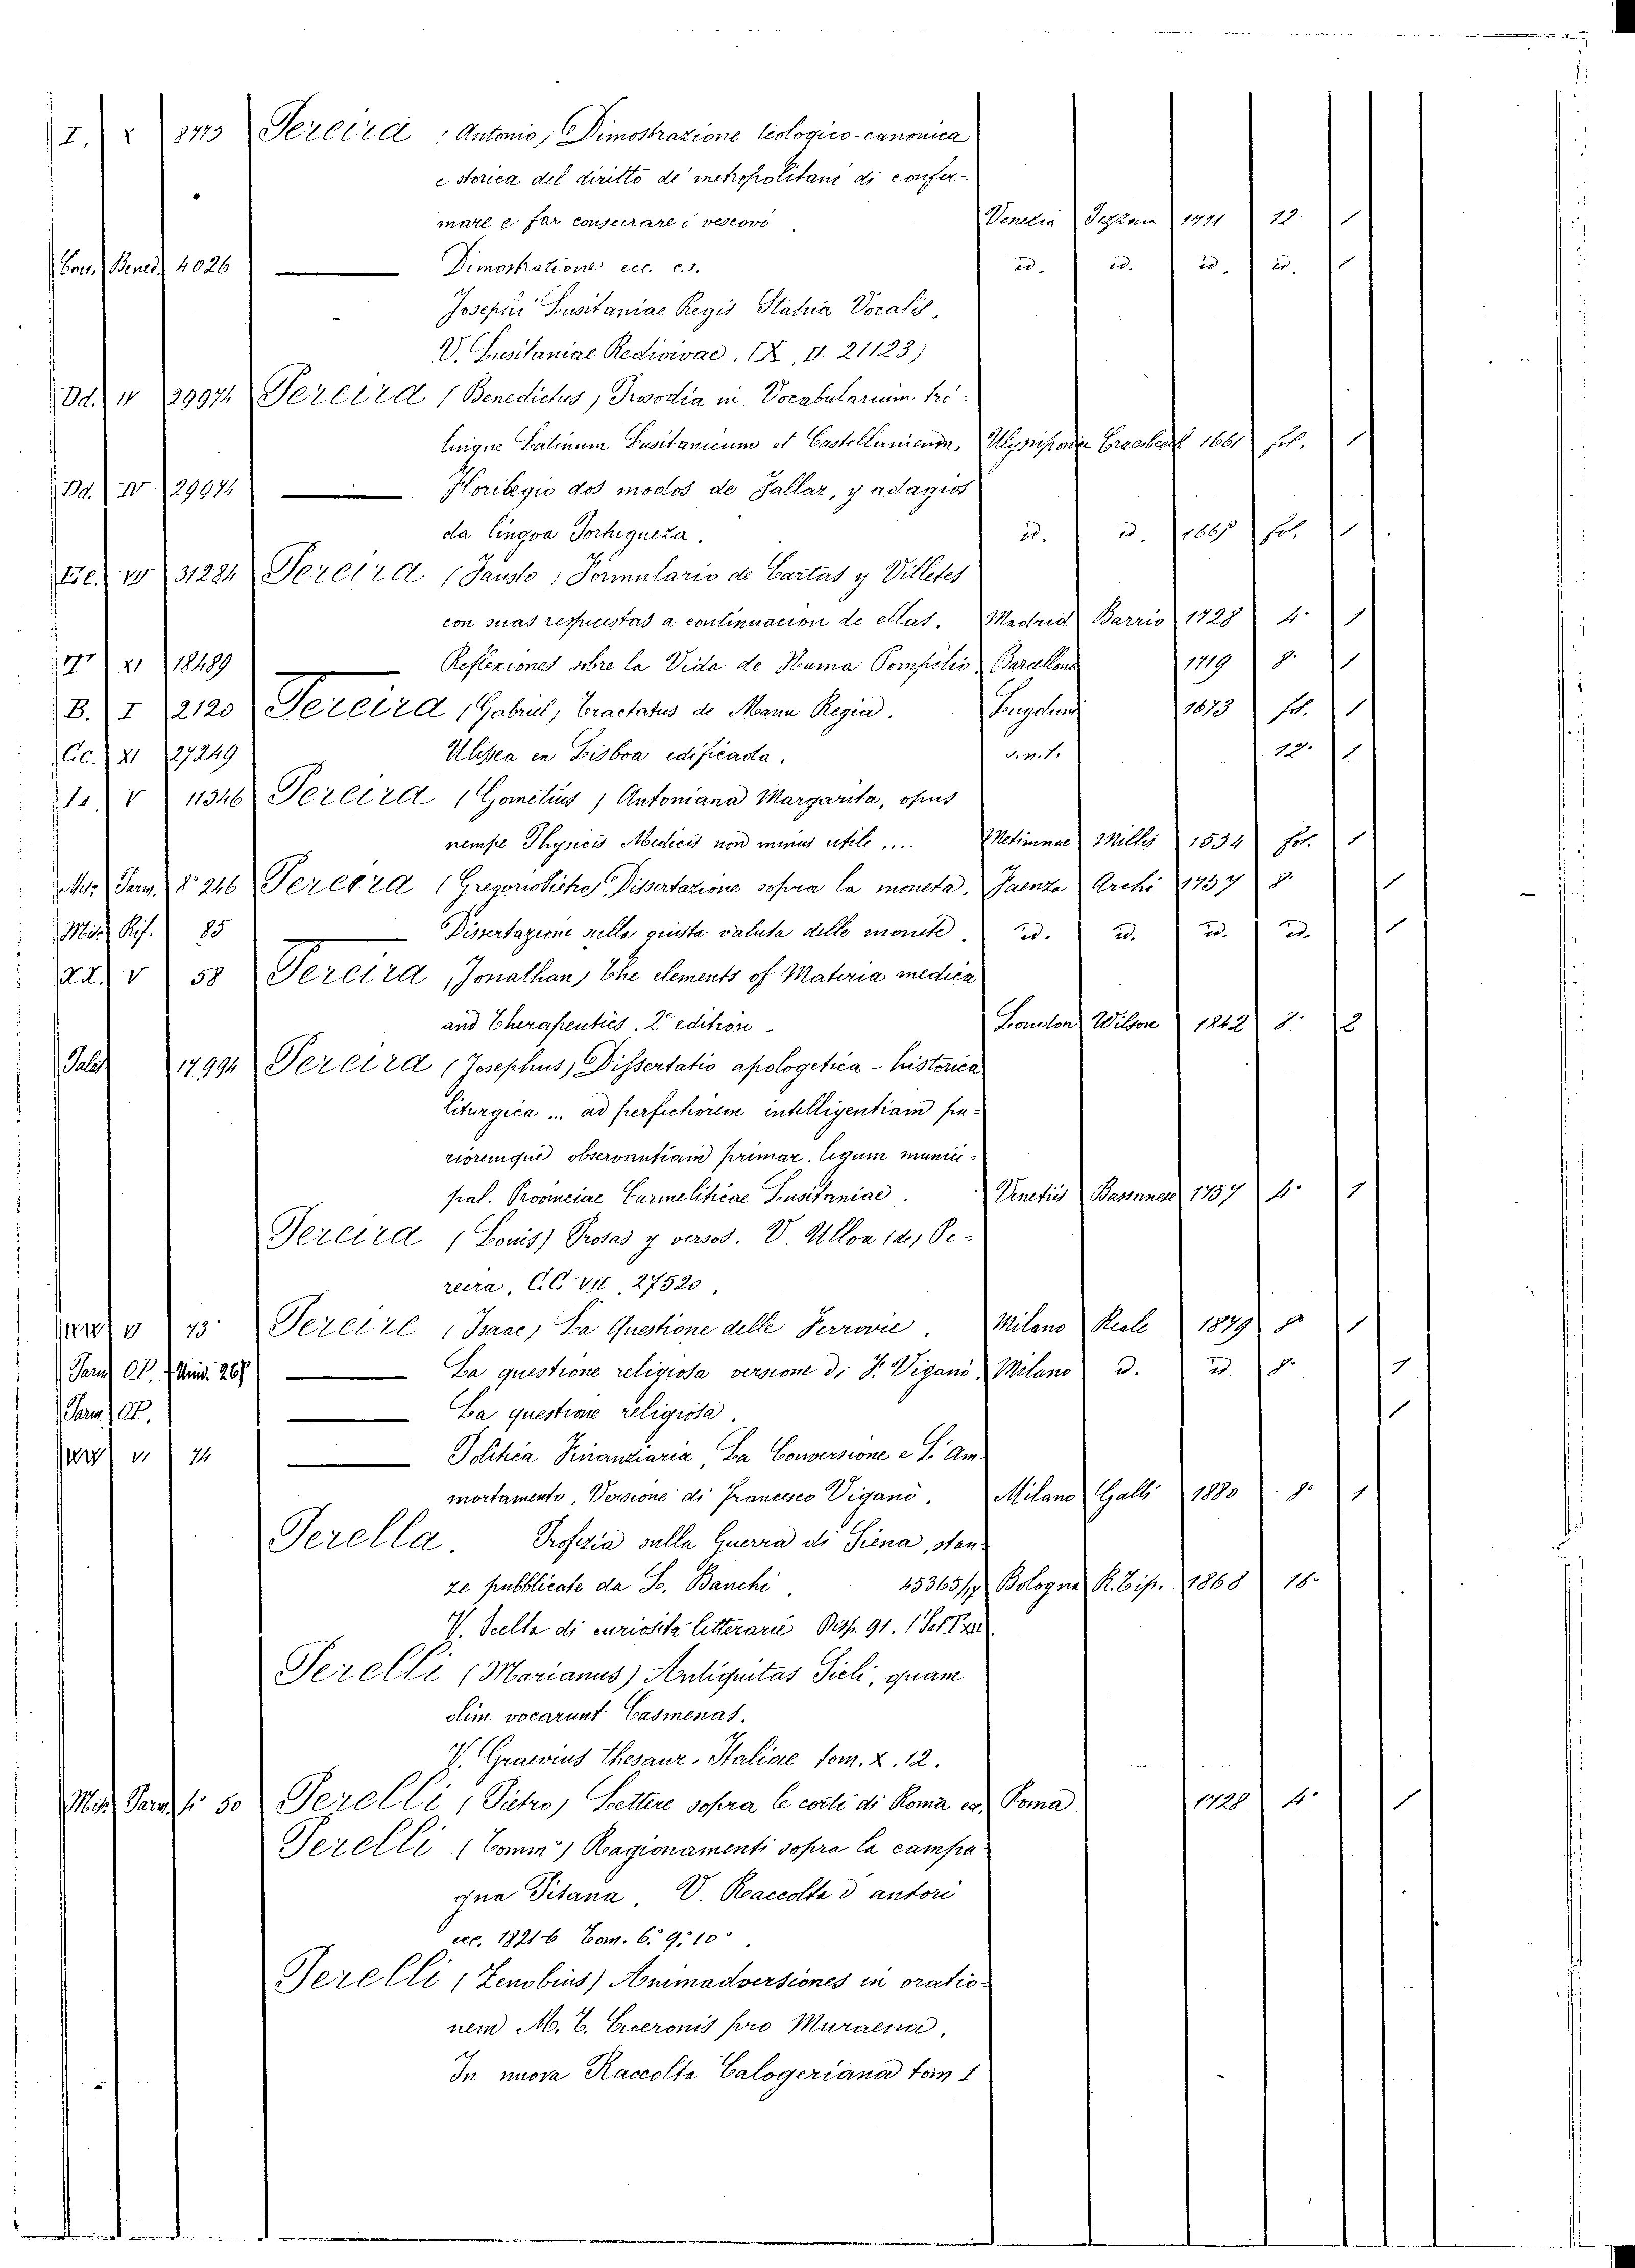 I. X 8775 Pereira (Antonio) Dimostrazione teologico-canonica
e storica del diritto de' metropolitani di confer-
mare e far consecrare i vescovi Venezia 1771 12. 1
Bened. 4026 ——— Dimostrazione ecc. c.s. id. id. id. id. 1
Josephi Lusitaniae Regis Statua Vocalis,
V. Lusitaniae Redivivae. (X, II. 21123)
Dd. IV 29974 Pereira (Benedictus) Prosodia in Vocabularium tri-
lingue Latinum Lusitanicum et Castellanicum, Ulyssipone Craesbeeck 1661 fol. 1
Dd. IV 29974 ——— Florilegio dos modos de Fallar, y adagios
da lingoa Portugueza. id. id. 1665 fol. 1
Ee. VII 31284 Pereira (Fausto) Formulario de Cartas y Villetes
con suas respuestas a continuacion de ellas. Madrid Barrio 1728 4° 1
XI 18489 ——— Reflexiones sobre la Vida de Numa Pompilio, Barcellona 1719 8° 1
B. I 2120 Pereira (Gabriel, Tractatus de Manu Regia. Lugduni 1673 fol. 1
Cc. XI 27249 Ulissea en Lisboa edificada. s. n. t. 12° 1
L. V 11546 Pereira (Gometius) Antoniana Margarita, opus
nempe Physicis Medicis non minus utile .... Metimnae Millis 1554 fol. 1
Parm. 8° 246 Pereira (Gregorio Vicho) Dissertazione sopra la moneta. Faenza Archi 1757 8° 1
Misc. Rif. 85 ——— Dissertazione sulla giusta valuta delle monete. id. id. id. id. 1
V 58 Pereira (Jonathan) The elements of Materia medica
and Therapeutics. 2ª edition. London Wilson 1842 8° 2
17994 Pereira (Josephus) Dissertatio apologetica-historica
liturgica ... ad perfectiorem intelligentiam pu-
rioremque observantiam primar. legum munici-
pal. Provinciae Carmeliticae Lusitaniae. Venetiis Bassanese 1757 4° 1
Pereira (Louis) Prosas y versos. V. Ulloa (de) Pe-
reira, CC VII 27520,
V 73 Pereire (Isaac) La Questione delle Ferrovie. Milano Reale 1879 8° 1
Parm. OP. 268 ——— La questione religiosa versione di F. Viganò, Milano id. id. 8° 1
Parm. OP. ——— La questione religiosa. 1
VI 74 ——— Politica Finanziaria, La Conversione e L'Am-
mortamento, Versione di Francesco Viganò. Milano Galli 1880 8° 1
Perella. Profezia sulla Guerra di Siena, stan-
ze pubblicate da L. Banchi, 45365/17 Bologna R. Tip. 1868 16°
V. Scelta di curiosità letterarie Disp. 91.
Perelli (Marianus) Antiquitas Sicli, quam
olim vocarunt Casmenas.
V. Graevius Thesaur. Italiae tom. X. 12.
Misc. Parm. 4° 50 Perelli (Pietro) Lettere sopra le corti di Roma ec. Roma 1728 4° 1
Perelli (Tomm°) Ragionamenti sopra la campa-
gna Pisana. V. Raccolta d'autori
ecc. 18216 Tom. 6. 9. 10°.
Perelli (Zenobius) Animadversiones in oratio-
nem M. T. Ciceronis pro Muraena.
In nuova Raccolta Calogeriana tom 1